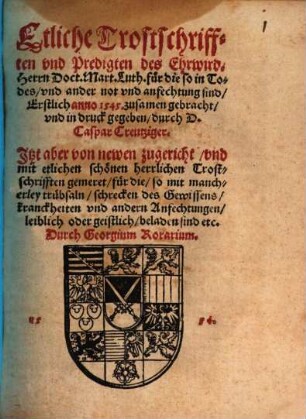 Etliche Trostschriff-
ten vnd Predigten des Ehrwird.
Herrn Doct. Mart. Luth. für die so in To-
des/ vnd ander not vnd anfechtung sind/
Erstlich anno 1545. zusamen gebracht/
vnd in druck gegeben/ durch D.
Caspar Creutziger.
Jtzt aber von newen zugericht/ vnd
mit etlichen schönen herrlichen Trost-
schrifften gemeret/ für die/ so mit manch-
erley trübsaln/ schrecken des Gewissens/
kranckheiten vnd andern Anfechtungen/
leiblich oder geistlich/ beladen sind etc.
Durch Georgium Rorarium.